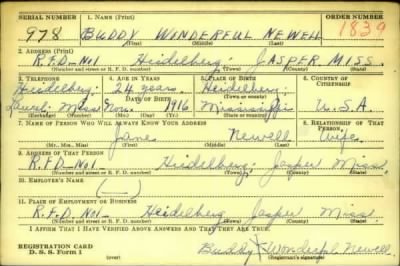 SERIAL NUMBER 1. NAME (Print) ORDER NUMBER
978 BUDDY WONDERFUL NEWELL 1839
(First) (Middle) (Last)
2. ADDRESS (Print)
R.F.D-No1 Heidelberg; JASPER MISS.
(Number and street or R. F. D. number) (Town) (County) (State)
3. TELEPHONE 4. AGE IN YEARS 5. PLACE OF BIRTH 6. COUNTRY OF CITIZENSHIP
Heidelberg; 24 years. Heidelberg;
DATE OF BIRTH (Town or county)
Miss 1916 Mississippi U.S.A.
(Exchange) (Number) (Mo.) (Day) (Yr.) (State or country)
7. NAME OF PERSON WHO WILL ALWAYS KNOW YOUR ADDRESS 8. RELATIONSHIP OF THAT PERSON
Jane Newell Wife.
(Mr., Mrs., Miss) (First) (Middle) (Last)
9. ADDRESS OF THAT PERSON
R.F.D No1- Heidelberg; Jasper Miss.
(Number and street or R. F. D. number) (Town) (County) (State)
10. EMPLOYER'S NAME
(—)
11. PLACE OF EMPLOYMENT OR BUSINESS
R.F.D, No1- Heidelberg Jasper Miss
(Number and street or R. F. D. number) (Town) (County) (State)
I AFFIRM THAT I HAVE VERIFIED ABOVE ANSWERS AND THAT THEY ARE TRUE.
REGISTRATION CARD
D. S. S. Form 1 (over) Buddy Wonderful Newell
(Registrant's signature)